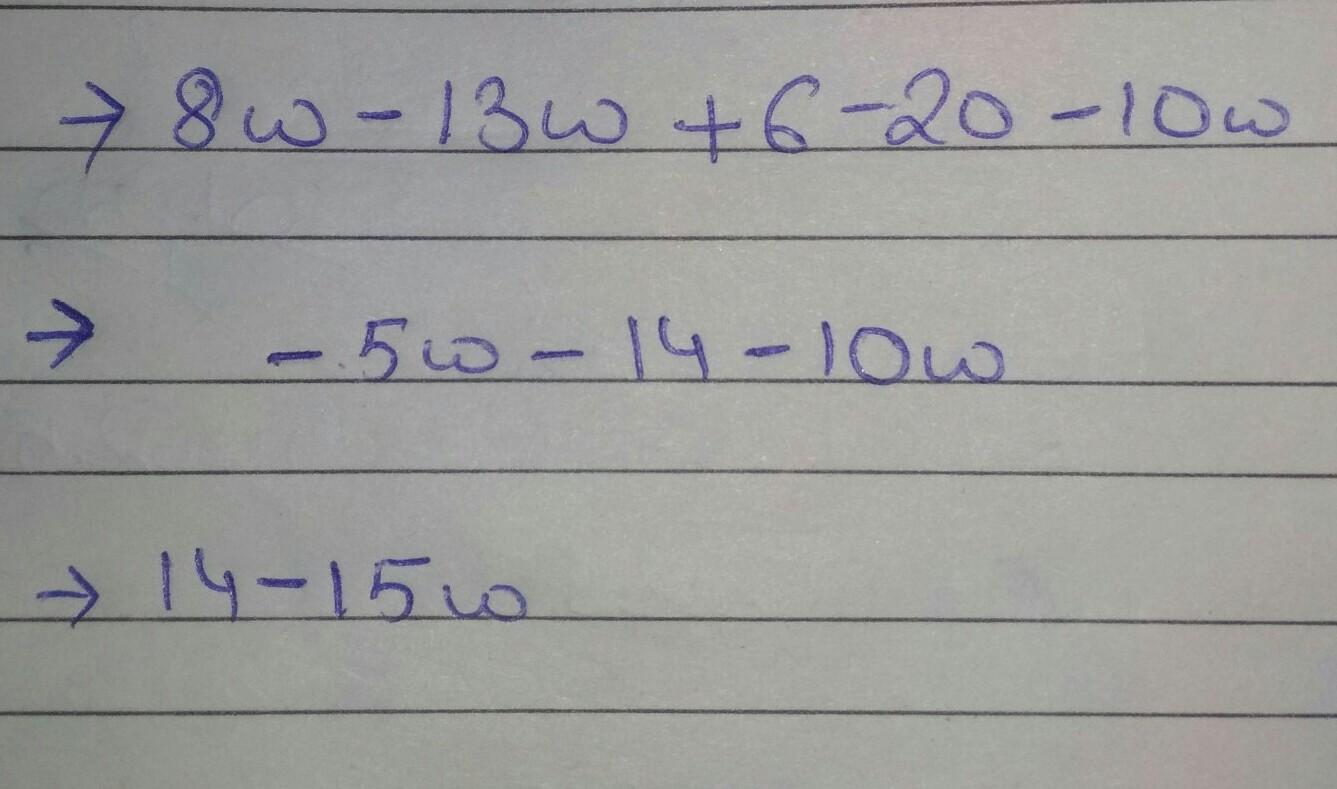 → 8w - 13w + 6 - 20 - 10w
→ - 5w - 14 - 10w
→ 14 - 15w